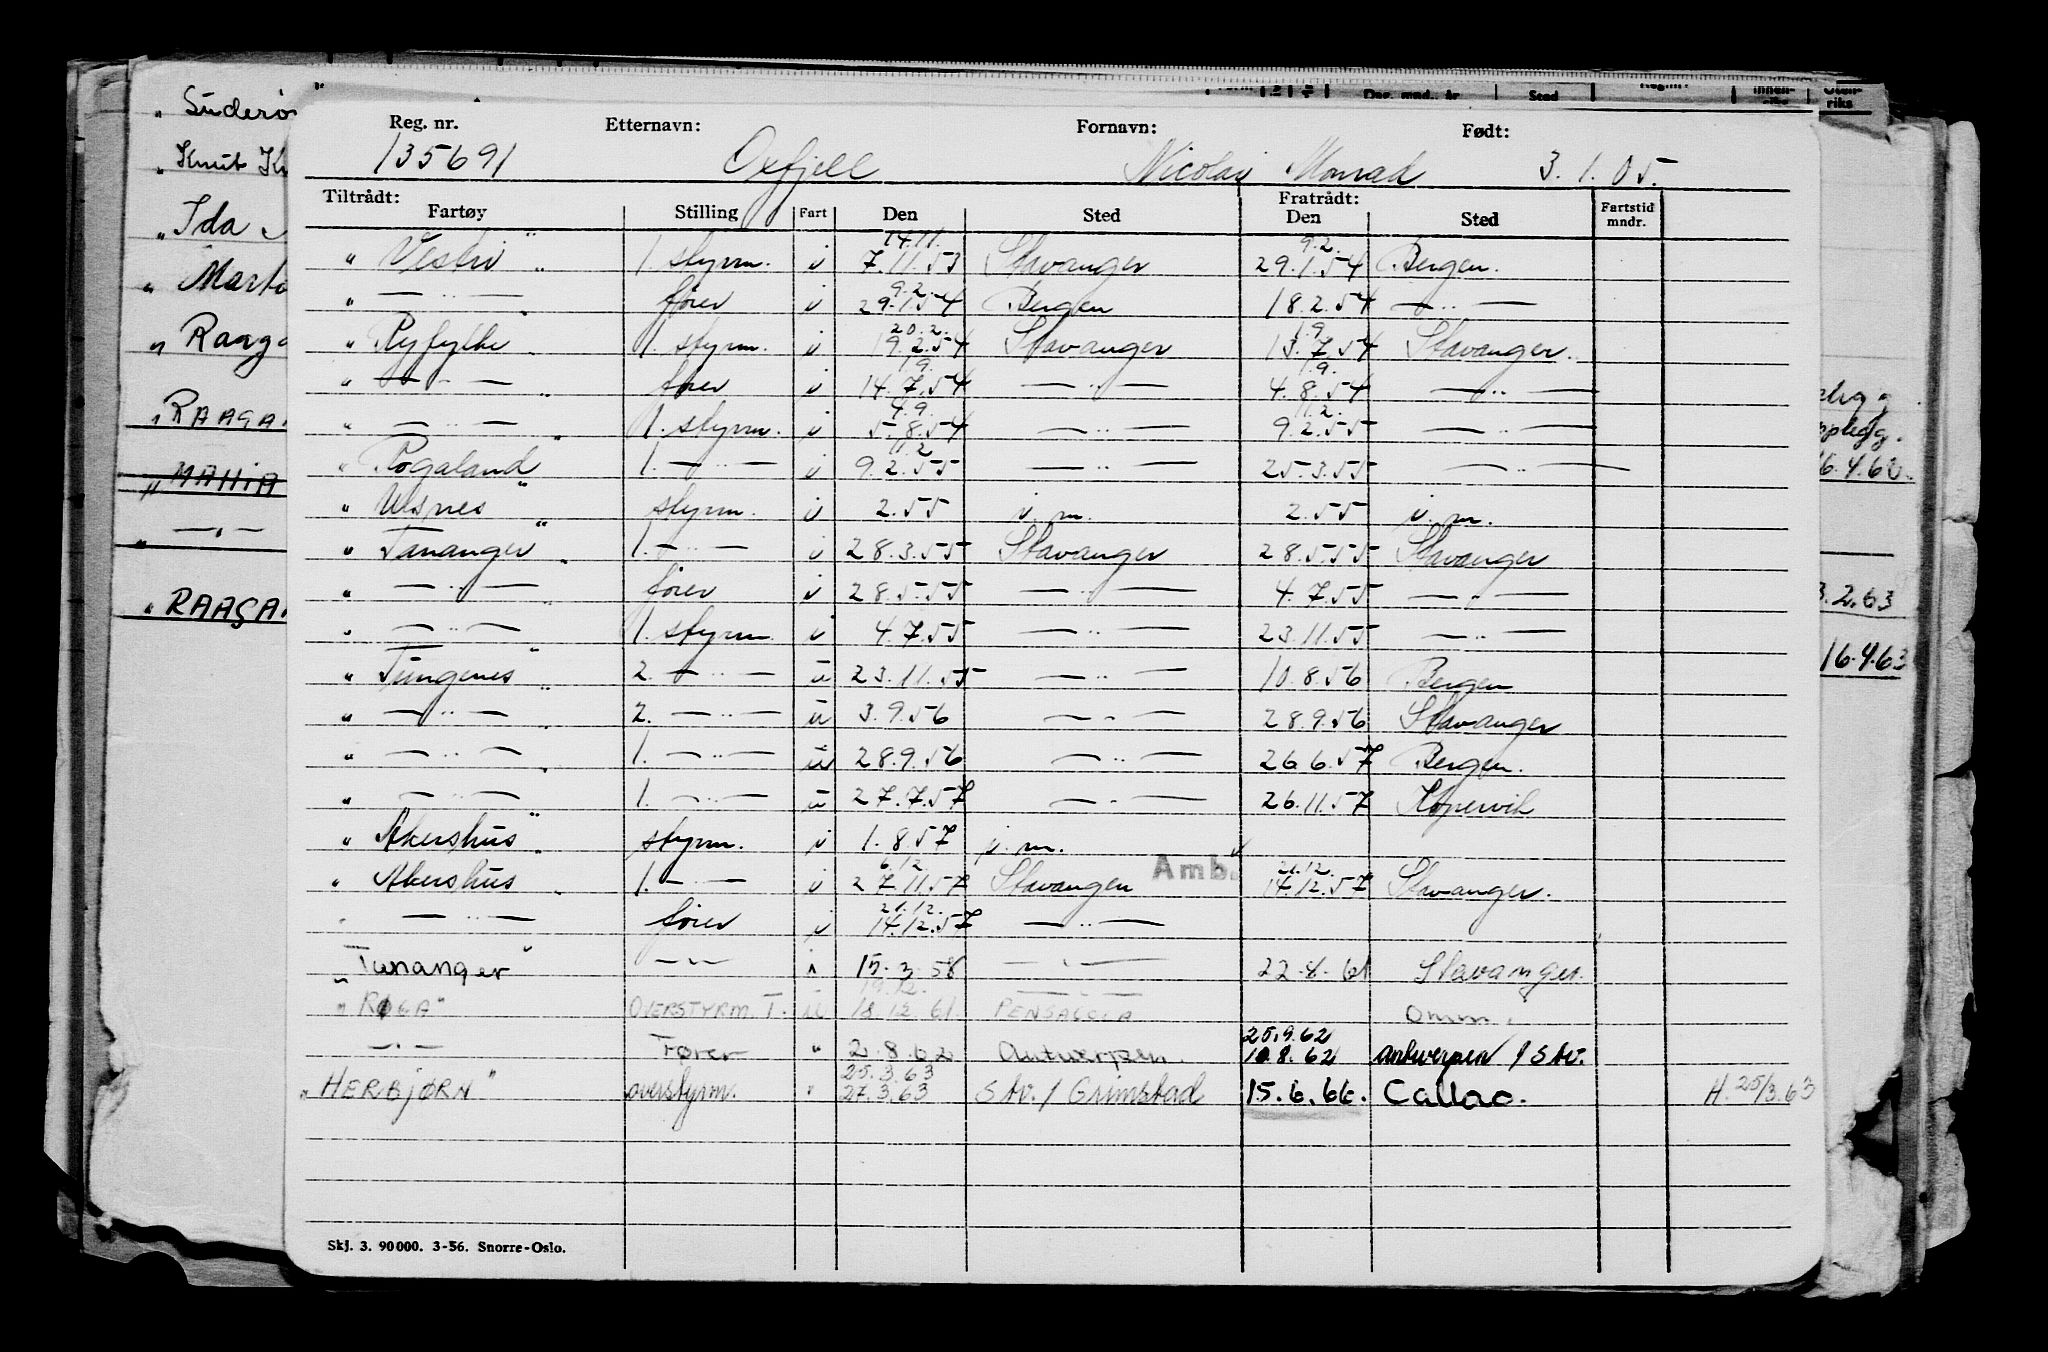 Reg. nr. Etternavn: Fornavn: Født:
135691 Oxfjell Nicolai Monrad 3.1.05.
Tiltrådt: Fratrådt:
Fartøy Stilling Fart Den Sted Den Sted Fartstid mndr.
14.11. 9.2.
" Vestri " 1. styrm. i 7.11.53 Stavanger 29.1.54 Bergen.
9.2.
" — " — fører i 29.1.54 Bergen 18.2.54 — " —
20.2. 1.9.
" Ryfylke " 1. styrm. i 19.2.54 Stavanger 13.7.54 Stavanger.
1.9. 1.9.
" — " — " fører i 14.7.54 — " — 4.8.54 — " —
4.9. 11.2.
" — " — " 1. styrm. i 5.8.54 — " — 9.2.55 — " —
11.2
" Rogaland " 1. — " — i 9.2.55 — " — 25.3.55 — " —
" Visnes " styrm. i 2.55 i. m. 2.55 i. m.
" Tananger " 1. — " — i 28.3.55 Stavanger 28.5.55 Stavanger
" — " — fører i 28.5.55 — " — 4.7.55 — " —
" — " — 1. styrm. i 4.7.55 — " — 23.11.55 — " —
" Tungenes " 2. — " — u 23.11.55 — " — 10.8.56 Bergen
" — " — 2. — " — u 3.9.56 — " — 28.9.56 Stavanger
" — " — " 1. — " — u 28.9.56 — " — 26.6.57 Bergen.
" — " — " 1. — " — u 27.7.57 — " — 26.11.57 Kopervik
" Akershus " styrm. i 1.8.57 i. m.
6.12 Amb. 21.12.
" Akershus " 1. — " — i 27.11.57 Stavanger 14.12.57 Stavanger.
21.12.
" — " — fører i 14.12.57 — " —
" Tananger " — " — i 15.3.58 — " — 22.8.61 Stavanger.
19.12.
" ROGA " OVERSTYRM. T. u 18.12.61. PENSACOLA Omm.
25.9.62
— " — Fører " 2.8.62 Antwerpen. 10.8.62 antwerpen / Stv.
25.3.63
" HERBJØRN " overstyrm. " 27.3.63 Stv. / Grimstad 15.6.66. Callao. H. 25/3.63
Skj. 3. 90000. 3-56. Snorre-Oslo.
" Suderø
" Knut K
" Ida
" Marta
" Raaga
" RAAGA
" MAHIA
" — " —
" RAAGA
Dag, mnd., år Sted Innenriks Utenriks
16.4.62
3.2.63
16.4.63